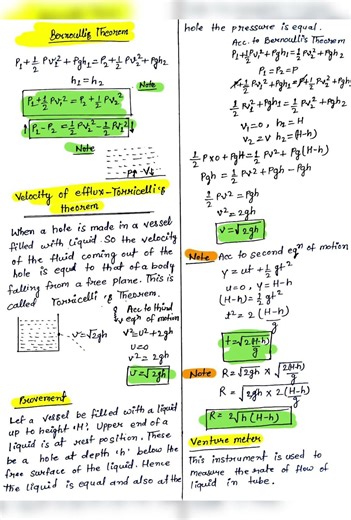 Bernoulli's Theorem
P₁+½ρv₁²+ρgh₁=P₂+½ρv₂²+ρgh₂
h₁=h₂
Note
P₁+½ρv₁²=P₂+½ρv₂²
↑P₁-P₂=½ρv₂²-½ρv₁²↓
Note
P↓ v↓
Velocity of efflux-Torricelli's
theorem
When a hole is made in a vessel
filled with liquid. So the velocity
of the fluid coming out of the
hole is equal to that of a body
falling from a free plane. This is
called Torricelli's Theorem.
Acc to third
eqⁿ of motion
v=√2gh
v²=u²+2gh
u=0
v²=2gh
v=√2gh
Let a vessel be filled with a liquid
up to height 'H'. Upper end of a
liquid is at rest position. These
be a hole at depth 'h' below the
free surface of the liquid. Hence
the liquid is equal and also at the
hole the pressure is equal.
Acc. to Bernoulli's Theorem
P₁+½ρv₁²+ρgh₁=½ρv₂²+ρgh₂
P₁=P₂=P
P+½ρv₁²+ρgh₁=P+½ρv₂²+ρgh₂
½ρv₁²+ρgh₁=½ρv₂²+ρgh₂
v₁=0, h₁=H
v₂=v h₂=(H-h)
½ρx0+ρgH=½ρv²+ρg(H-h)
ρgh=½ρv²+ρgh-ρgh
½ρv²=ρgh
v²=2gh
v=√2gh
Note Acc to second eqⁿ of motion
y=ut+½gt²
u=0, y=H-h
(H-h)=½gt²
t²=2(H-h)/g
t=√2(H-h)/g
Note R=√2gh x √2(H-h)/g
R=√2gh x 2(H-h)/g
R=2√h(H-h)
Venture meter
This instrument is used to
measure the rate of flow of
liquid in tube.